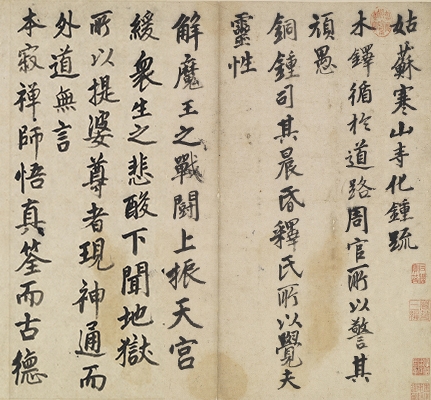 姑蘇寒山寺化鍾疏
木鐸循於道路周官所以警其
頑愚
銅鍾司其晨昏釋氏所以覺夫
靈性
解魔王之戰鬪上振天宮
緩衆生之悲酸下聞地獄
所以提婆尊者現神通而
外道無言
本寂禪師悟真筌而古德